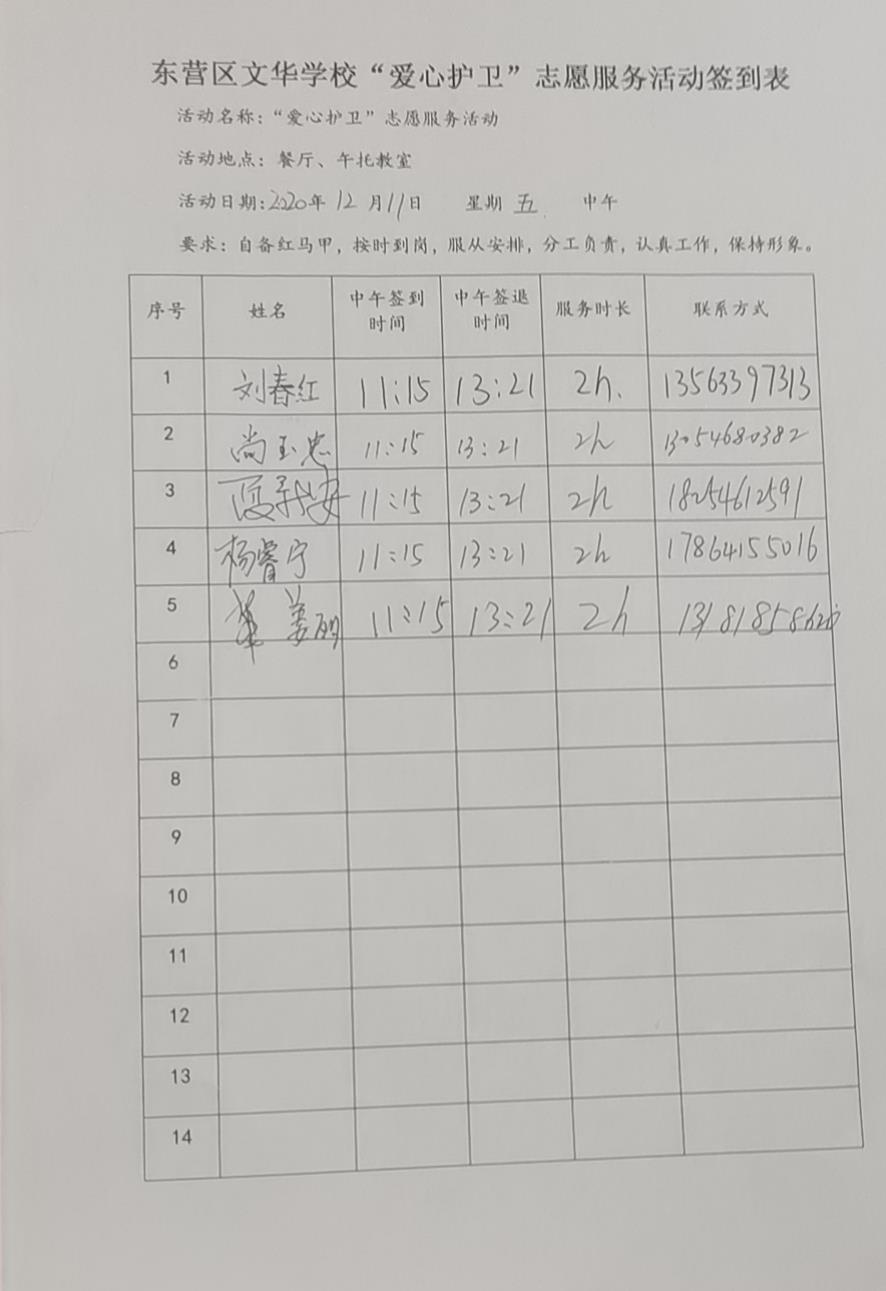 东营区文华学校“爱心护卫”志愿服务活动签到表
活动名称：“爱心护卫”志愿服务活动
活动地点：餐厅、午托教室
活动日期:2020年 12 月11日 星期 五 中午
要求：自备红马甲，按时到岗，服从安排，分工负责，认真工作，保持形象。
序号 姓名 中午签到时间 中午签退时间 服务时长 联系方式
1 刘春红 11:15 13:21 2h. 13563397313
2 尚玉忠 11:15 13:21 2h 13054680382
3 11:15 13:21 2h 18254612591
4 杨睿宁 11:15 13:21 2h 17864155016
5 姜丽 11:15 13:21 2h
6
7
8
9
10
11
12
13
14